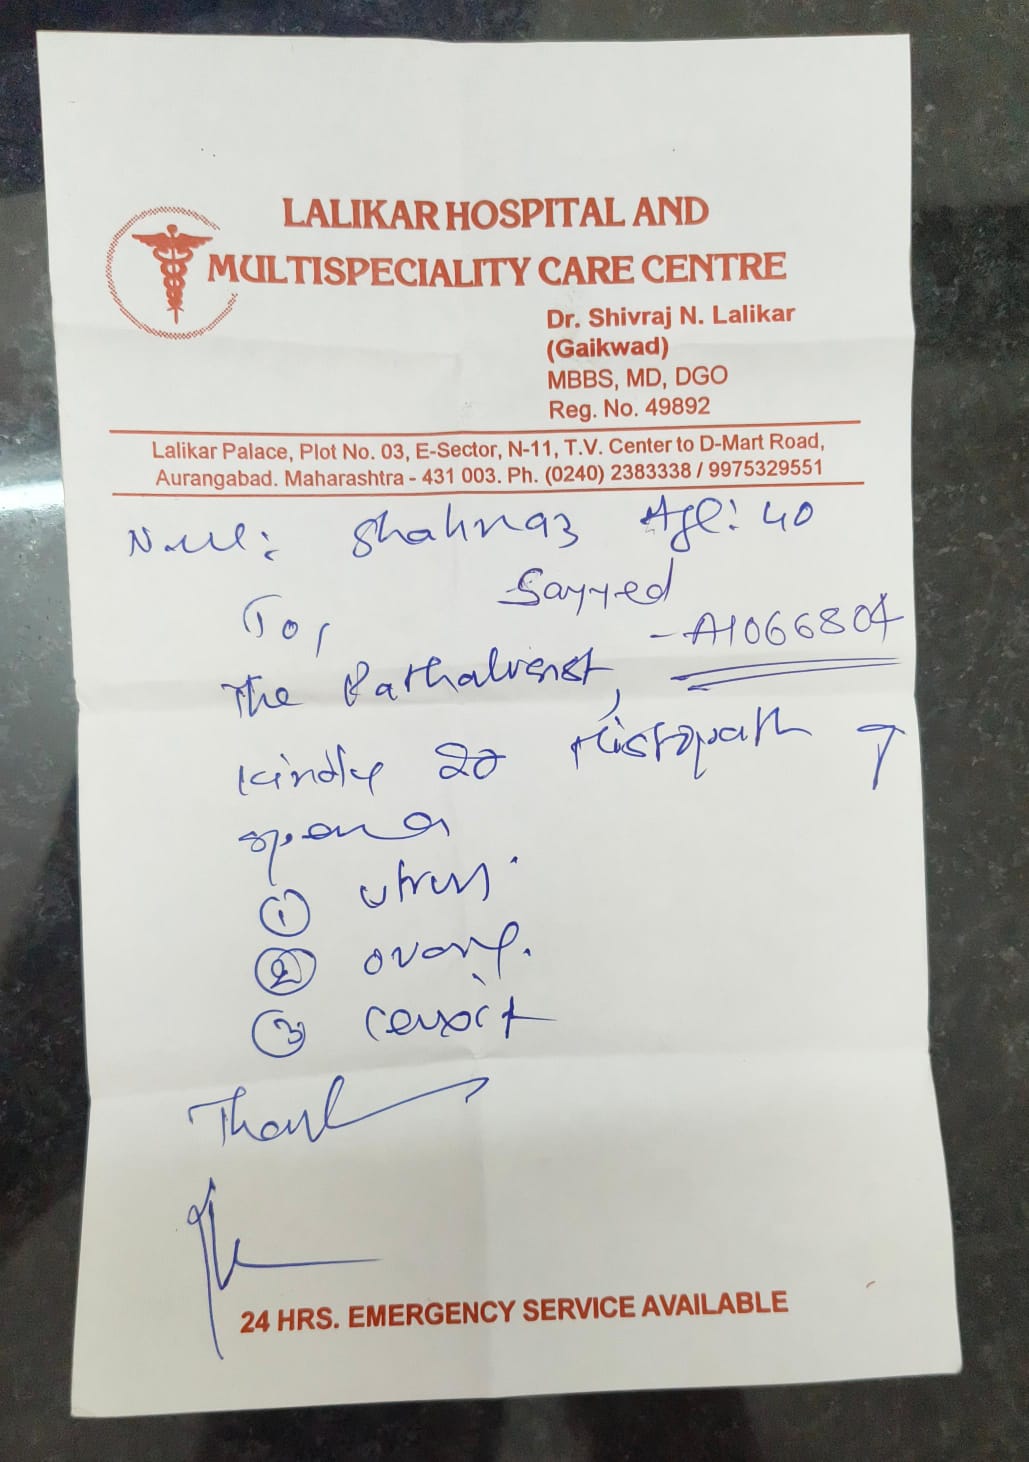 LALIKAR HOSPITAL AND
MULTISPECIALITY CARE CENTRE
Dr. Shivraj N. Lalikar
(Gaikwad)
MBBS, MD, DGO
Reg. No. 49892
Lalikar Palace, Plot No. 03, E-Sector, N-11, T.V. Center to D-Mart Road,
Aurangabad. Maharashtra - 431 003. Ph. (0240) 2383338 / 9975329551
Shahnaz Age: 40
Sayyed
To,
- A1066804
The
Kindly do Histopath
①
② ovary.
③
24 HRS. EMERGENCY SERVICE AVAILABLE